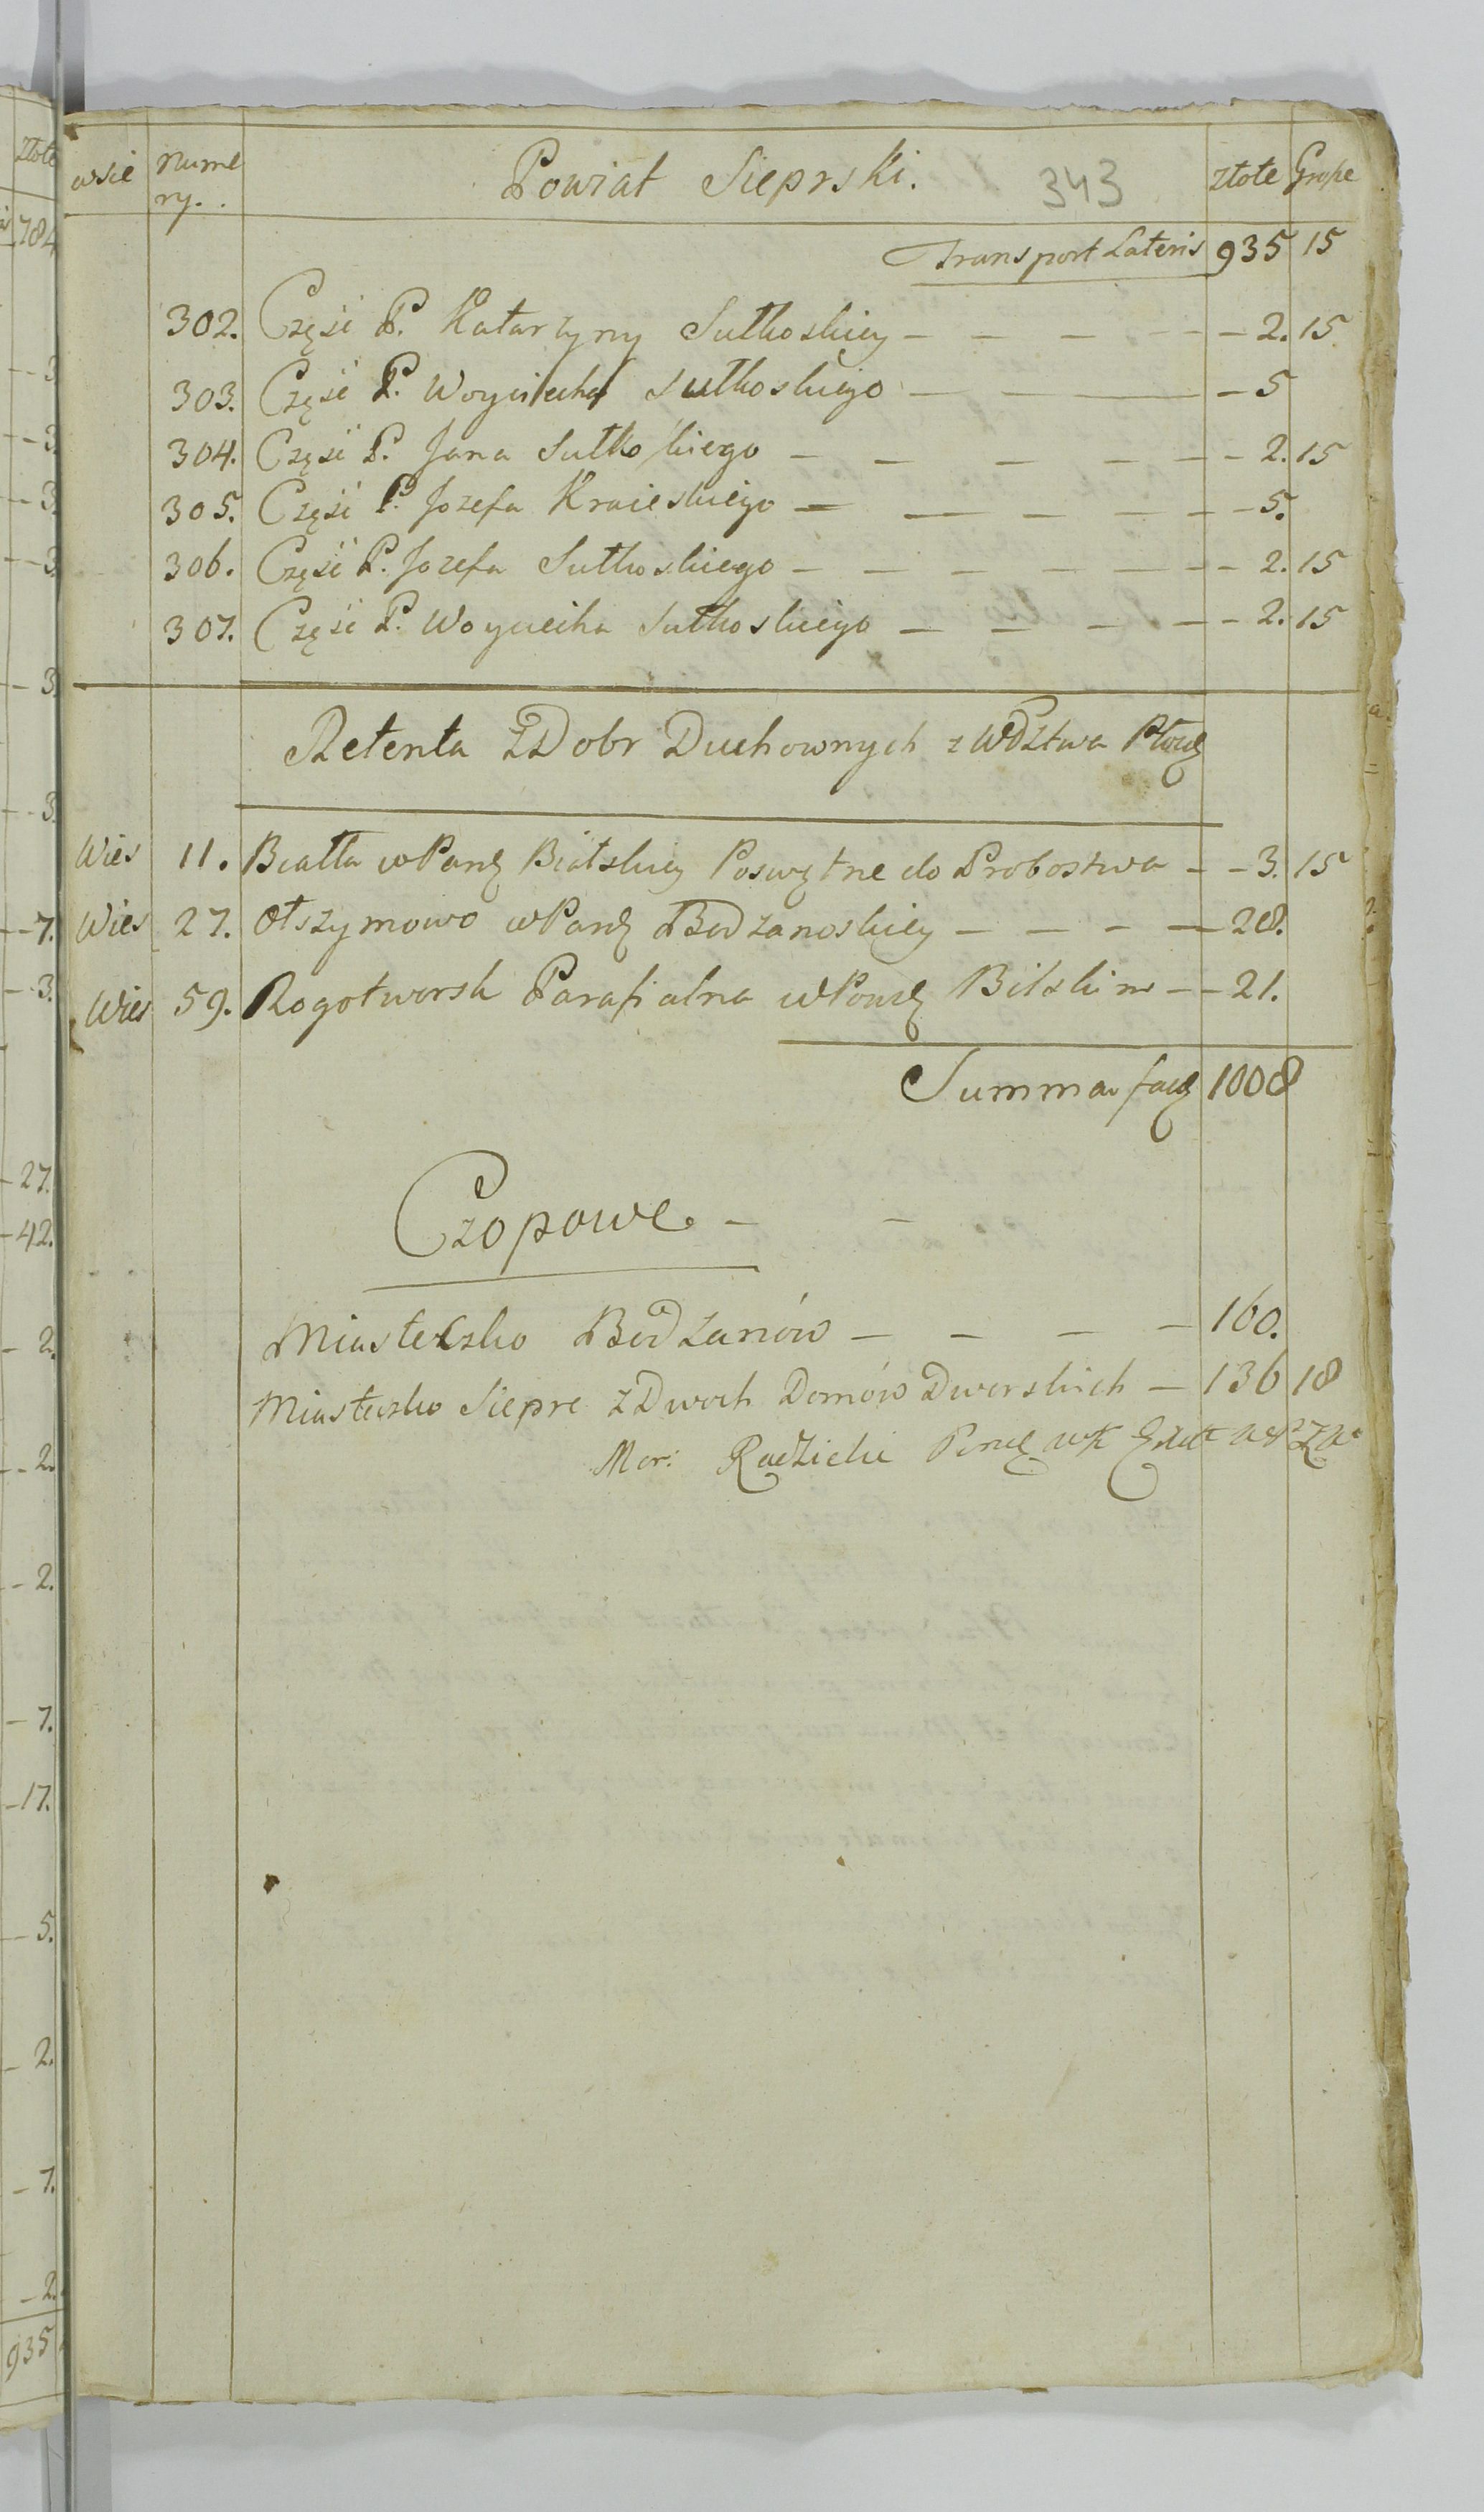 wsie numery. Powiat Sieprski. 343 złote Grosze
Transport Lateris 935 15
302. Częsć P. Katarzyny Sutkoskiey - - - - 2. 15
303. Częsć P. Woyciecha Sutkoskiego - - - 5
304. Częsć P. Jana Sutkoskiego - - - - - 2. 15
305. Częsć P. Jozefa Kraieskiego - - - - - 5.
306. Częsć P. Jozefa Sutkoskiego - - - - - 2. 15
307. Częsć P. Woyciecha Sutkoskiego - - - - - 2. 15
Retenta z Dobr Duchownych z Wdztwa Płock
Wies 11. Białła w Par Bialskiey Poswętne do Probostwa - - 3. 15
Wies 27. Olszymowo w Par Bodzanoskiey - - - - 28.
Wies 59. Rogotworsk Parafialna w Pow Bilskim - - 21.
Summa fac 1008
Czopowe. - -
Miasteczko Bodzanów - - - - 160.
Miasteczko Siepre z Dwoch Domów Dworskich - 136 18
Mar: Radzicki
złote
784
- - 3.
- - 3.
- - 3.
- - 3.
- - 3.
- - 3.
- - 7.
- - 3.
- 27.
- 42.
- 2.
- - 2.
- - 2.
- 7.
- 17.
- - 5.
- 2.
- 7.
- 2.
935